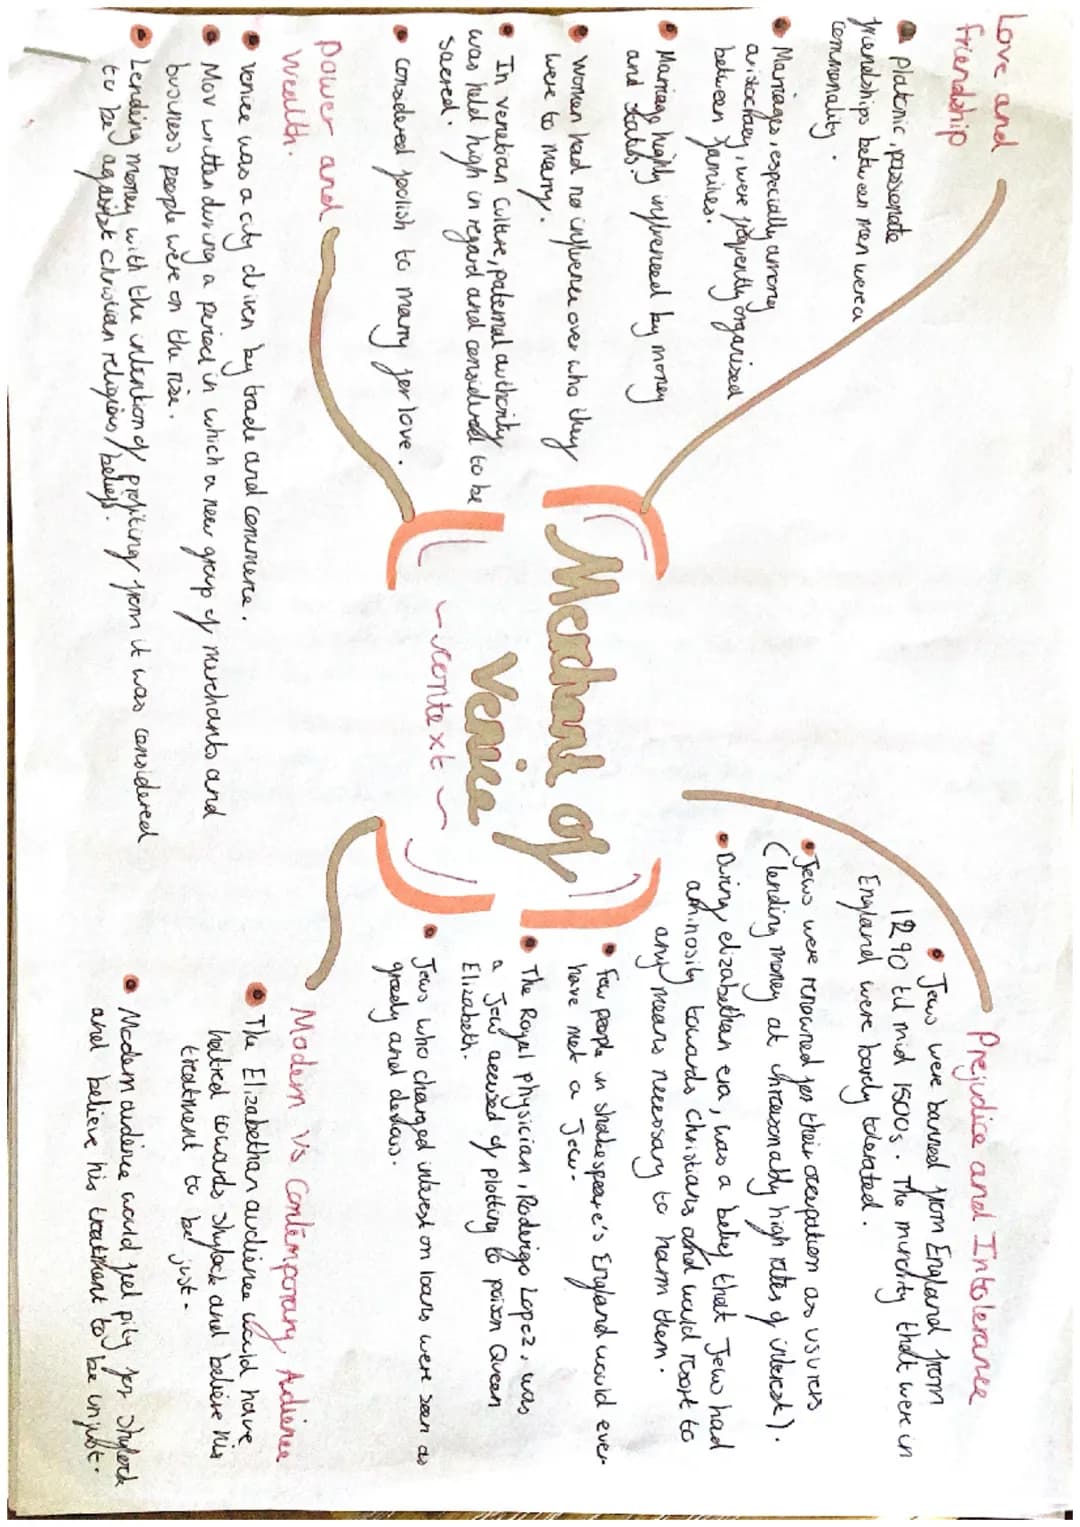 Love and
friendship
• Platonic, passionate
friendships between men were a
commonality.
• Marriages, especially among
aristocracy, were frequently organised
between families.
• Marriage highly influenced by money
and status.
• Women had no influence over who they
were to marry.
• In venetian culture, paternal authority
was held high in regard and considered to be
sacred.
• considered foolish to marry for love.
Power and
Wealth.
• Venice was a city driven by trade and commerce.
• MoV written during a period in which a new group of merchants and
business people were on the rise.
• Lending money with the intention of profiting from it was considered
to be against christian religious/beliefs.
Merchant of
Venice
~context~
Prejudice and Intolerance
• Jews were banned from England from
1290 til mid 1500s. The minority that were in
England were barely tolerated.
• Jews were renowned for their occupation as usurers
(lending money at unreasonably high rates of interest).
• During elizabethan era, was a belief that Jews had
aminosity towards christians and would resort to
any means necessary to harm them.
• Few people in shakespeare's England would ever
have met a Jew.
• The Royal physician, Roderigo Lopez, was
a Jew accused of plotting to poison Queen
Elizabeth.
• Jews who charged interest on loans were seen as
greedy and
Modern vs Contemporary Audience
• The Elizabethan audience would have
hatred towards Shylock and believe his
treatment to be just.
• Modern audience would feel pity for Shylock
and believe his treatment to be unjust.